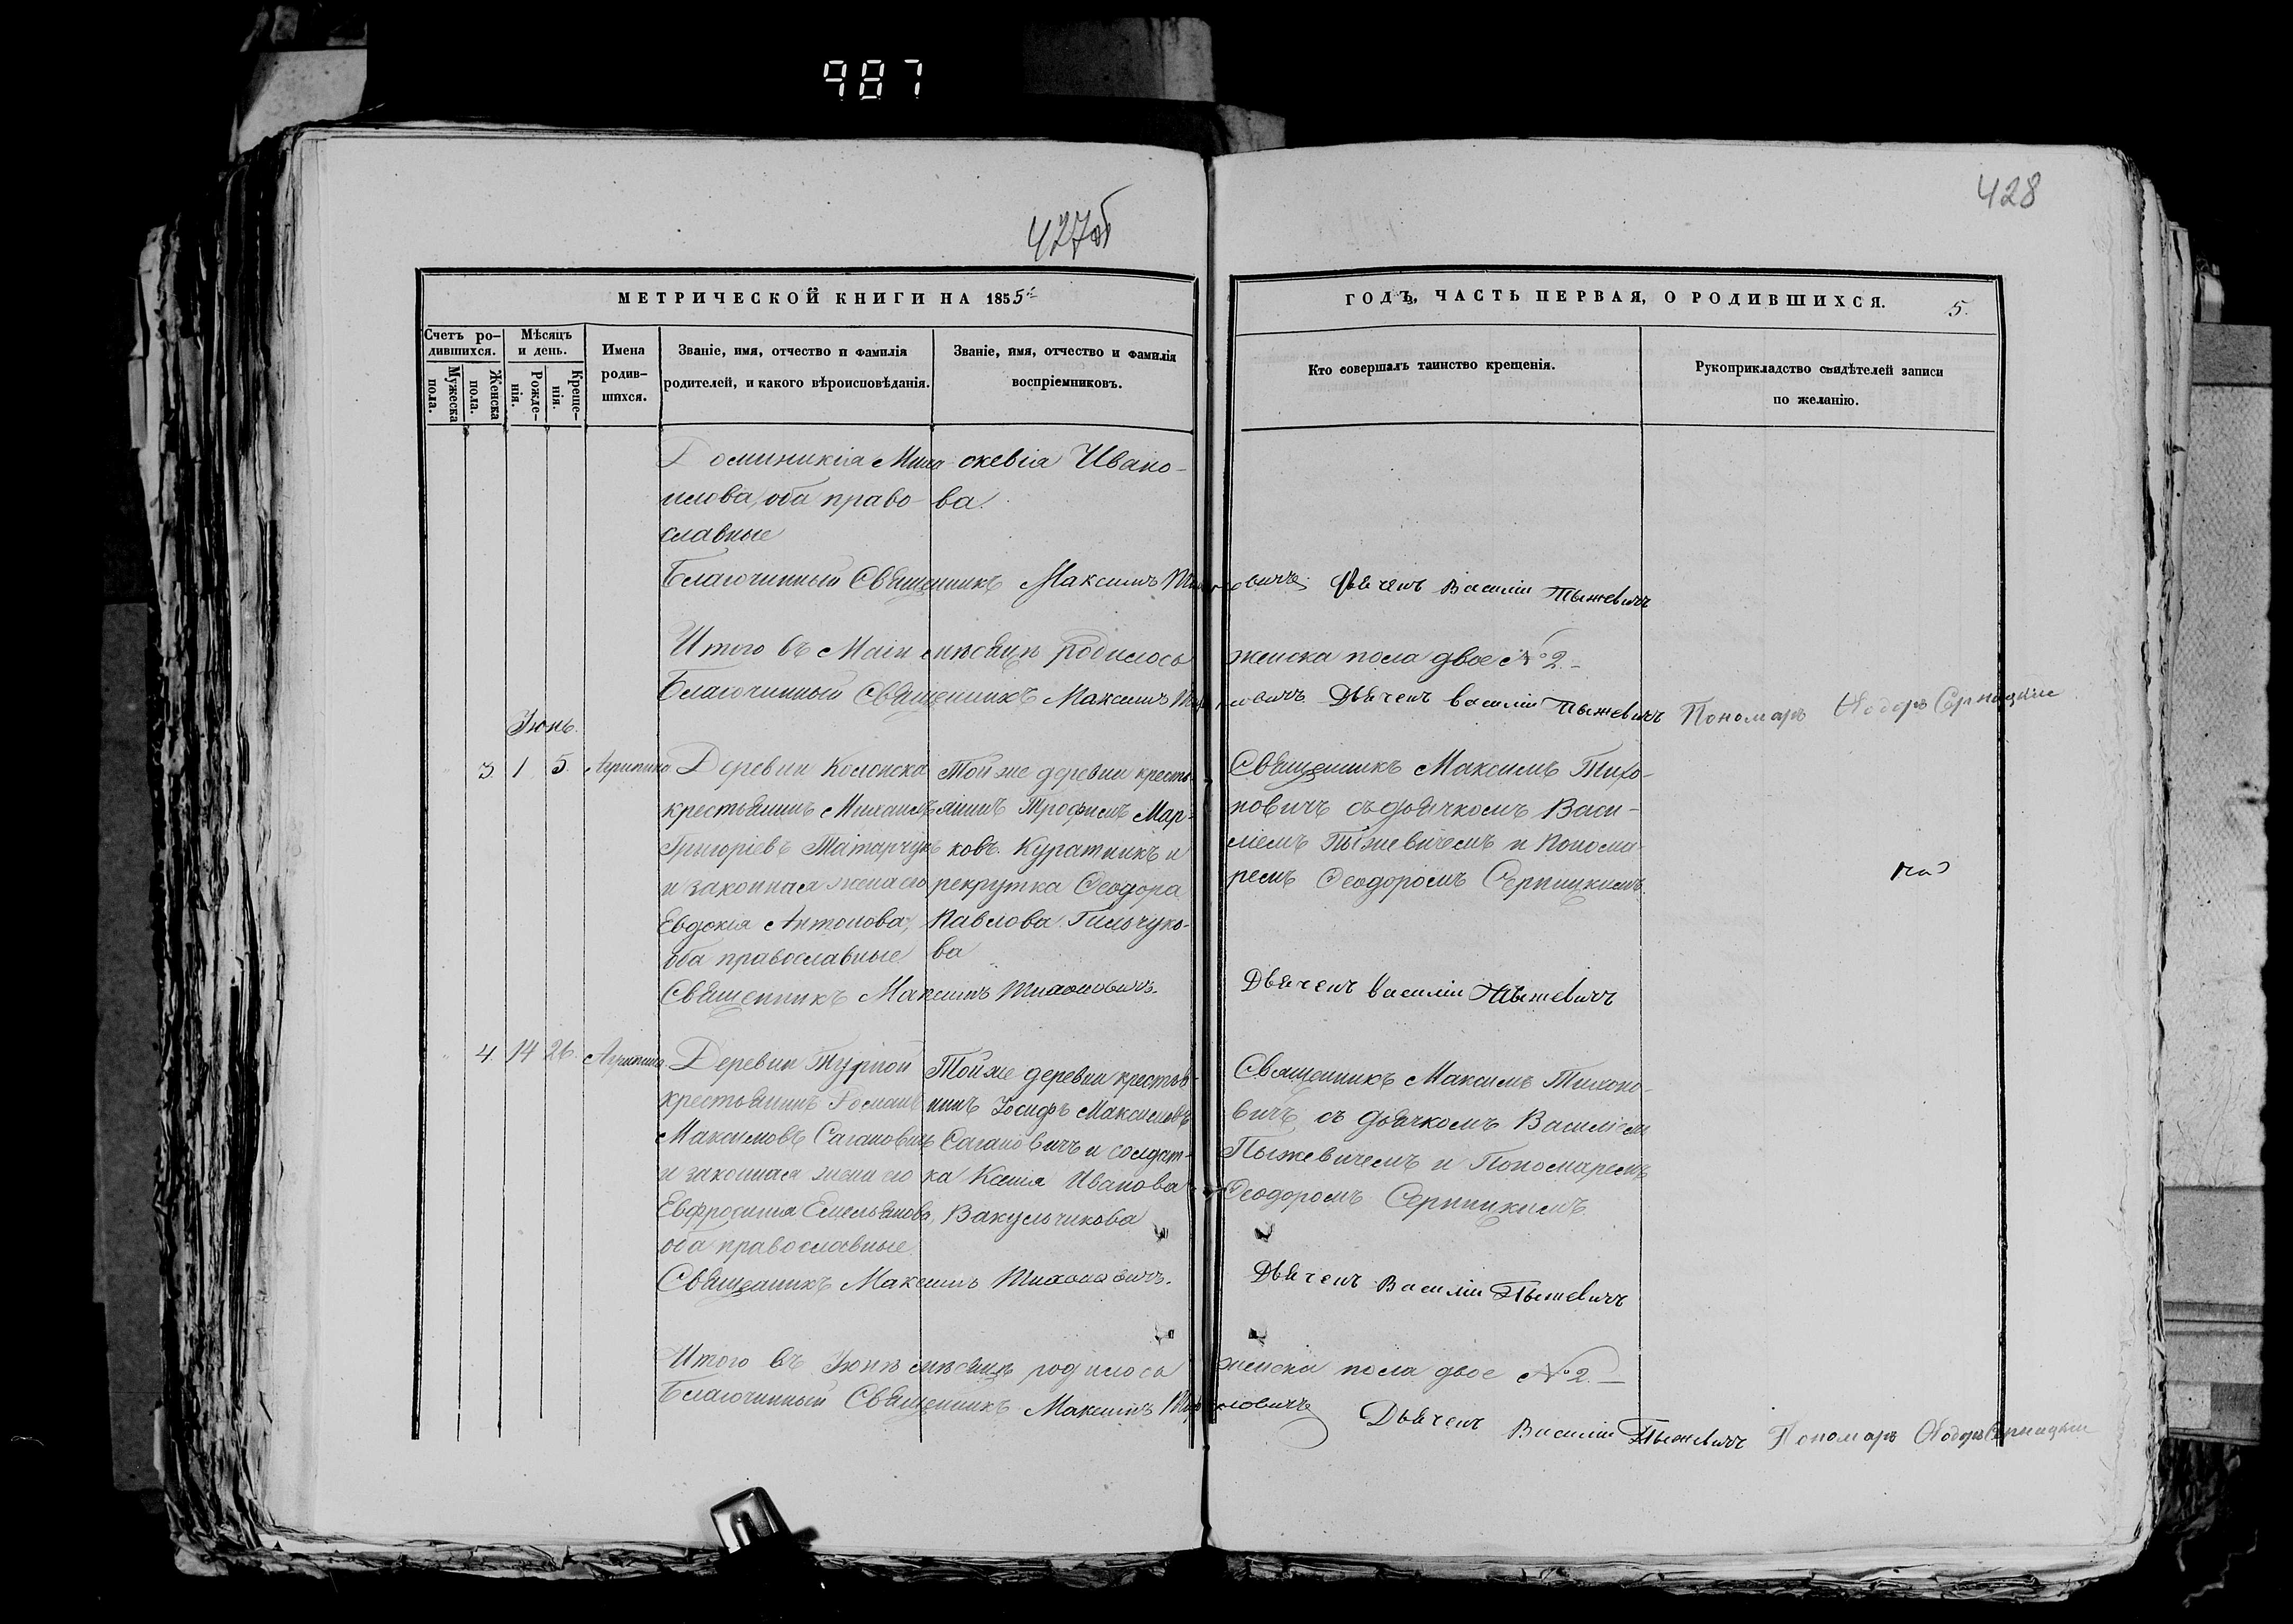 987
427об
428
МЕТРИЧЕСКОЙ КНИГИ НА 1855й
Счетъ ро-
дившихся.
Мужеска
пола.
Женска
пола.
Мѣсяцъ
и день.
Рожде-
нія.
Креще-
нія.
Имена
родив-
шихся.
Званіе, имя, отчество и фамилія
родителей, и какого вѣроисповѣданія.
Званіе, имя, отчество и фамилія
воспріемниковъ.
ГОДЪ, ЧАСТЬ ПЕРВАЯ, О РОДИВШИХСЯ.
5.
Кто совершалъ таинство крещенія.
Рукоприкладство свидѣтелей записи
по желанію.
Доминикія Миха
илова, оба право-
славные
скевія Ивано-
ва.
Благочинный Священникъ Максимъ Тихоновичъ Дьячекъ Василій Пыжевичъ
Итого въ Маіи мѣсяцѣ родилось женска пола двое № 2.
Благочинный Священникъ Максимъ Тихоновичъ Дьячекъ Василій Пыжевичъ Пономаръ Ѳеодоръ Серницкій
Іюнь.
3 1 5. Агрипина
Деревни Колонска
крестьянинъ Михаилъ
Григоріевъ Татарчукъ
и законная жена его
Евдокія Антонова,
оба православные
Той же деревни кресть-
янинъ Трофимъ Мар-
ковъ Куратникъ и
рекрутка Ѳеодора
Павлова Гильчуко-
ва
Священникъ Максимъ Тихо-
новичъ съ дьячкомъ Васи-
ліемъ Пыжевичемъ и Понома-
ремъ Ѳеодоромъ Серницкимъ.
Священникъ Максимъ Тихоновичъ. Дьячекъ Василій Пыжевичъ
4 14 26. Агрипина
Деревни Турной
крестьянинъ Романъ
Максимовъ Сагановичъ
и законная жена его
Евфросинія Емельянова,
оба православные.
Той же деревни крестья-
нинъ Іосифъ Максимовъ
Сагановичъ и солдат-
ка Ксенія Иванова
Вакульчикова
Священникъ Максимъ Тихоно-
вичъ, съ дьячкомъ Василіемъ
Пыжевичемъ и Пономаремъ
Ѳеодоромъ Серницкимъ.
Священникъ Максимъ Тихоновичъ. Дьячекъ Василій Пыжевичъ
Итого въ Іюнѣ мѣсяцѣ родилось женска пола двое № 2.
Благочинный Священникъ Максимъ Тихоновичъ Дьячекъ Василій Пыжевичъ Пономаръ Ѳеодоръ Серницкій